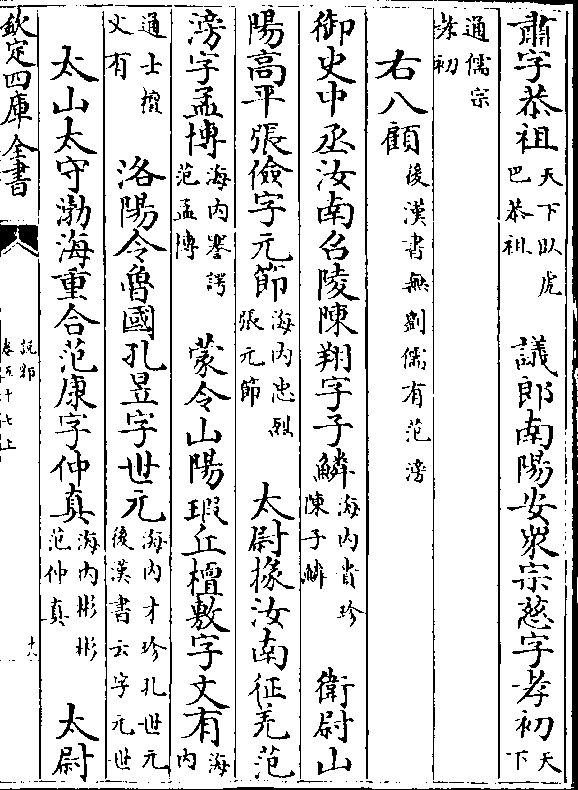 肅字恭祖天下卧虎巴恭祖 議郎南陽安衆宗慈字孝初天下
通儒宗孝初
右八顧後漢書無劉儒有范滂
御史中丞汝南召陵陳翔字子鱗海内貴珍陳子鱗 衛尉山
陽高平張儉字元節海内忠烈張元節 太尉掾汝南征羌范
滂字孟博海内謇諤范孟博 蒙令山陽瑕丘檀敷字文有海内
通士檀文有 洛陽令魯國孔昱字世元海内才珍孔世元後漢書云字元世
太山太守渤海重合范康字仲真海内彬彬范仲真 太尉
欽定四庫全書
説郛
卷五十七上